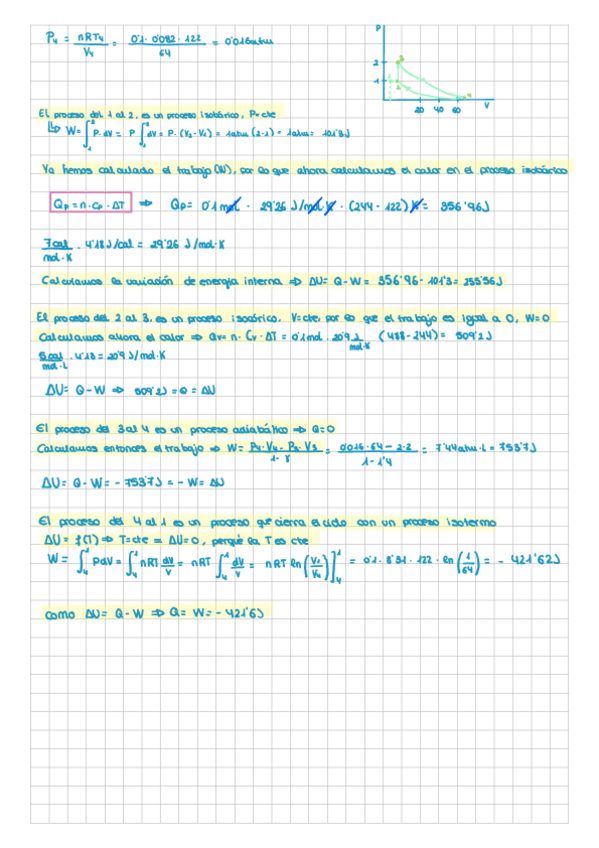 P4 = nRT4 / V4 = 0'1 · 0'082 · 122 / 64 = 0'016atm
P
2
1
3
2
1
4
20 40 60 V
El proceso del 1 al 2, es un proceso isobárico, P=cte
↳ W= ∫₁² P·dV = P ∫₁² dV = P·(V2-V1) = 1atm (2-1) = 1atm = 101'3J
Ya hemos calculado el trabajo (W), por lo que ahora calculamos el calor en el proceso isobárico
Qp = n·Cp·ΔT ⇒ Qp= 0'1mol · 29'26 J/mol K · (244-122) K = 356'96J
7cal / mol·K · 4'18J/cal = 29'26 J/mol·K
Calculamos la variación de energía interna ⇒ ΔU= Q-W = 356'96 - 101'3 = 255'56J
El proceso del 2 al 3, es un proceso isocórico, V=cte, por lo que el trabajo es igual a 0, W=0
Calculamos ahora el calor ⇒ Qv= n· Cv·ΔT = 0'1mol · 20'9 J / mol·K (488-244) = 509'2J
5cal / mol·L · 4'18 = 20'9 J/mol·K
ΔU= Q-W ⇒ 509'2J = Q = ΔU
El proceso del 3 al 4 es un proceso adiabático ⇒ Q=0
Calculamos entonces el trabajo ⇒ W= P4·V4 - P3·V3 / 1-γ = 0'016·64 - 2·2 / 1-1'4 = 7'44atm·L = 753'7J
ΔU= Q-W = -753'7J = -W= ΔU
El proceso del 4 al 1 es un proceso que cierra el ciclo con un proceso isotermo
ΔU= f(T) ⇒ T=cte = ΔU=0, porque la T es cte
W= ∫₄¹ PdV = ∫₄¹ nRT dV/V = nRT ∫₄¹ dV/V = nRT ln(V1/V4)]₄¹ = 0'1 · 8'31 · 122 · ln(1/64) = -421'62J
como ΔU= Q-W ⇒ Q= W= -421'6J